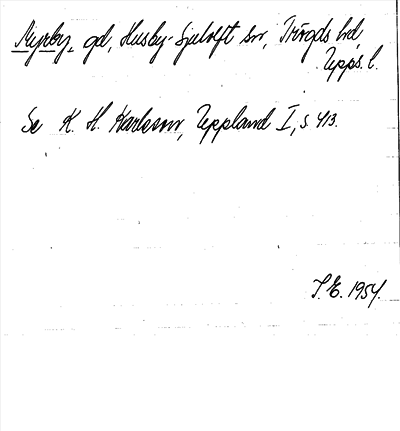 Myrby, gd, Husby-Sjutolft sn, Trögds hd,
Upps. l.
Se K. H. Karlsson, Uppland I, s 413.
S. E. 1954.